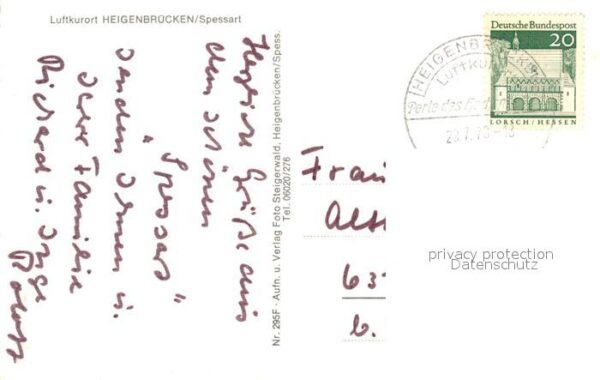 Luftkurort HEIGENBRÜCKEN/Spessart
Herzliche Grüße aus
dem schönen
"Spessart"
senden Ihnen u.
Ihrer Familie
Richard u. Inge
Nr. 295F · Aufn. u. Verlag Foto Steigerwald, Heigenbrücken/Spess.
Tel. 06020/276
Deutsche Bundespost
20
LORSCH/HESSEN
HEIGENBRÜCKEN
Luftku
Perle des
Frau
63
privacy protection
Datenschutz